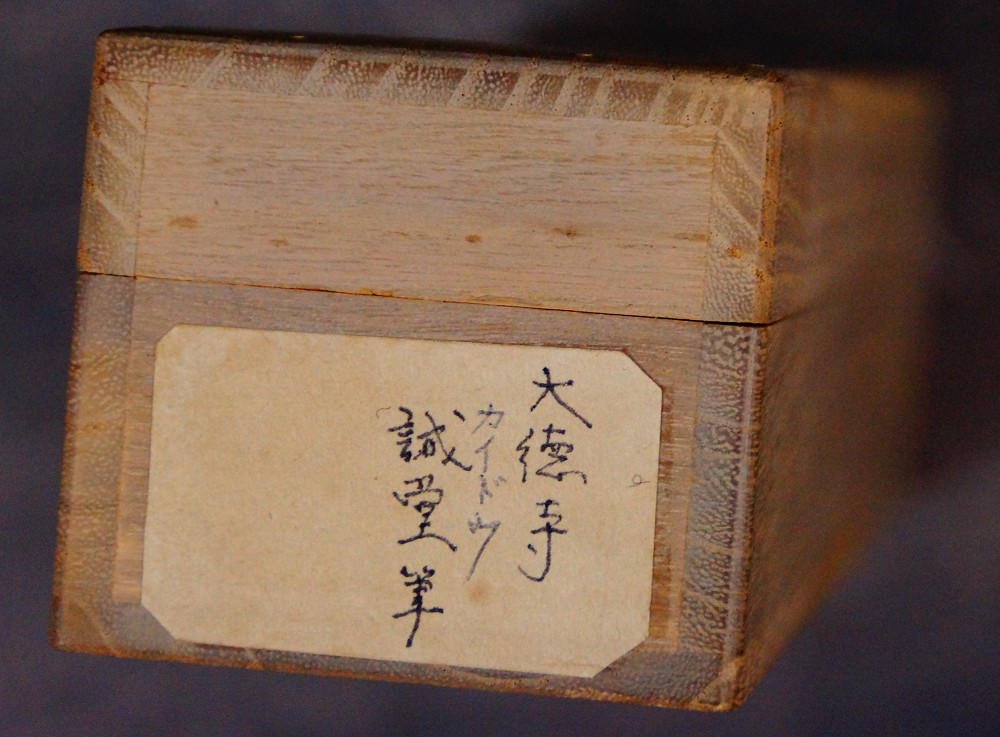 大徳寺
カイドウ
誠堂筆